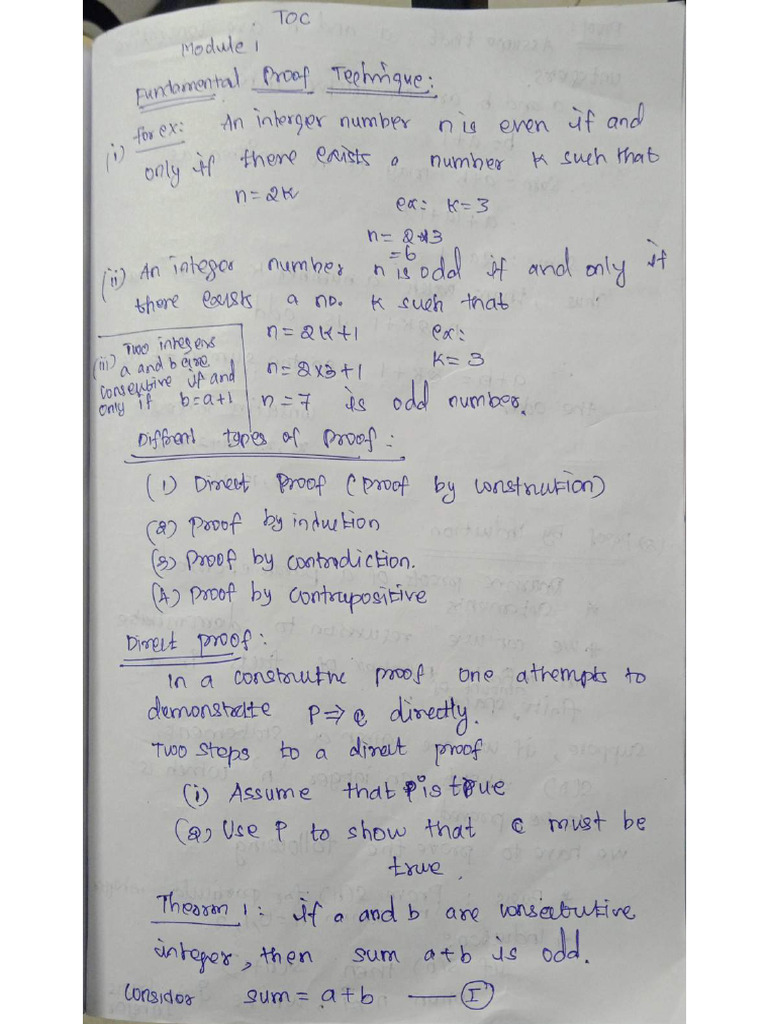 TOC
Module 1
Fundamental Proof Technique:
(i) for ex: An interger number n is even if and
only if there exists a number K such that
n=2K
ex: K=3
n=2*3
=6
(ii) An integer number n is odd if and only if
there exists a no. K such that
n=2K+1 ex:
K=3
n=2x3+1
n=7 is odd number.
(iii) Two integers
a and b are
consecutive if and
only if b=a+1
Diffrent types of Proof:
(1) Direct Proof (Proof by construction)
(2) Proof by induction
(3) Proof by contradiction.
(4) Proof by contrapositive
Direct proof:
In a construtive proof one athempts to
demonstrate P⇒C directly.
Two steps to a direct proof
(i) Assume that P is true
(2) Use P to show that C must be
true.
Theorm 1: if a and b are consecutive
integer, then sum a+b is odd.
Consider sum = a+b —— (I)